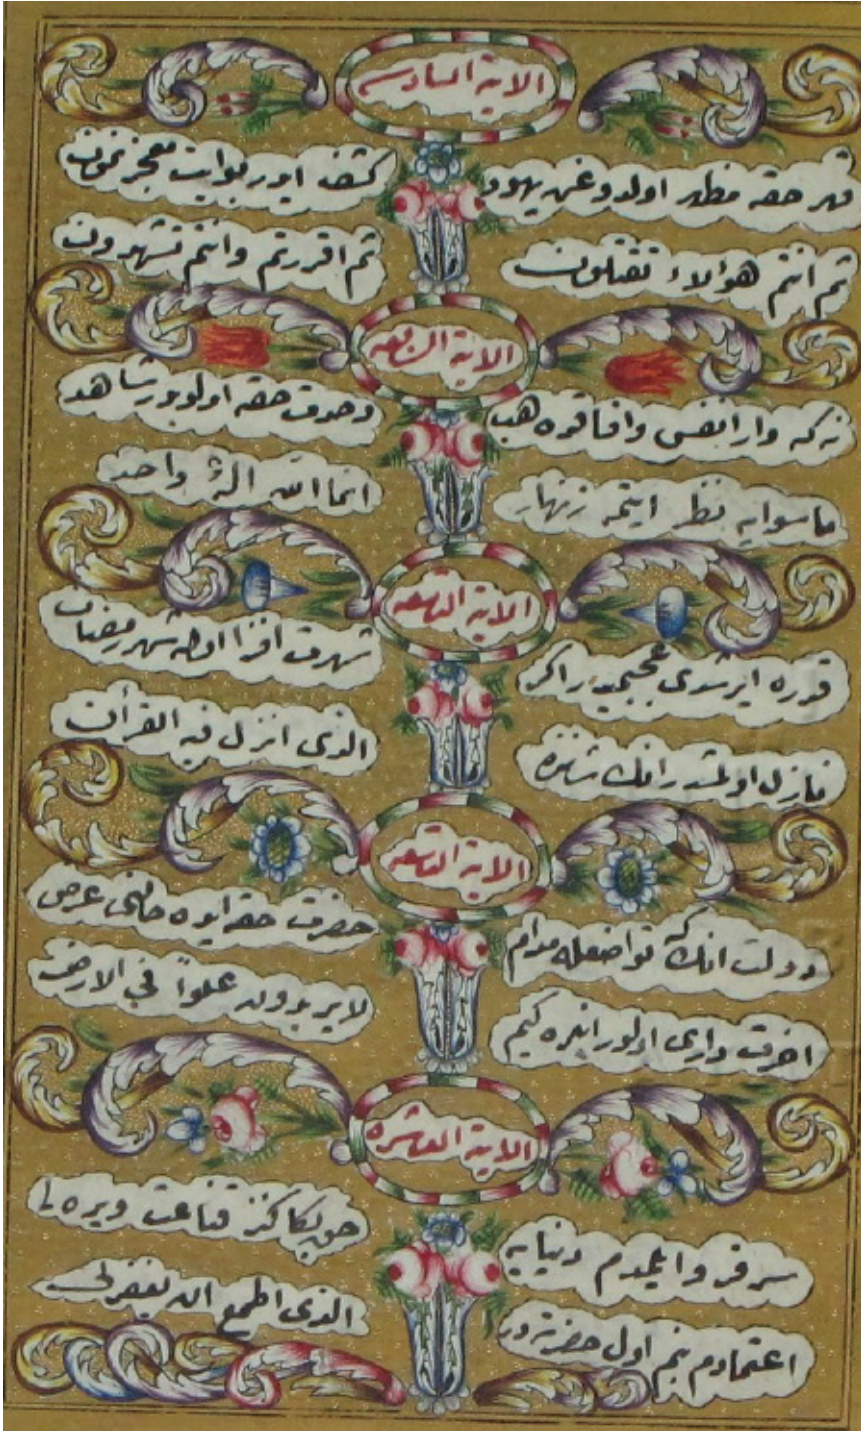 الاية السادسه
قهر حقه مظهر اولدوغن يهود كشف ايدر بوايت معجز نمون
ثم انتم هؤلاء تقتلون ثم اقررتم وانتم تشهدون
الاية السابعه
نه كه وار انفس وافاقده هب وحدت حقه اولوبدر شاهد
ماسوايه نظر ايتمه زنهار انما الله اله واحد
الاية
قدره ايرشدى عجبميدر اكر شرف افزا اوله شهر رمضان
نازل اولمشدر انك شاننده الذى انزل فيه القرأن
الاية التاسعه
دولت انك كه تواضعله مدام حضرت حقه ايده حالنى عرض
اخرت دارى اولور انلره كيم لايريدون علوًا في الارض
الاية العاشره
سرفرو ايلمدم دنيايه حق بكا كنز قناعت ويره لى
اعتمادم بنم اول حضرته در الذى اطمع ان يغفرلى